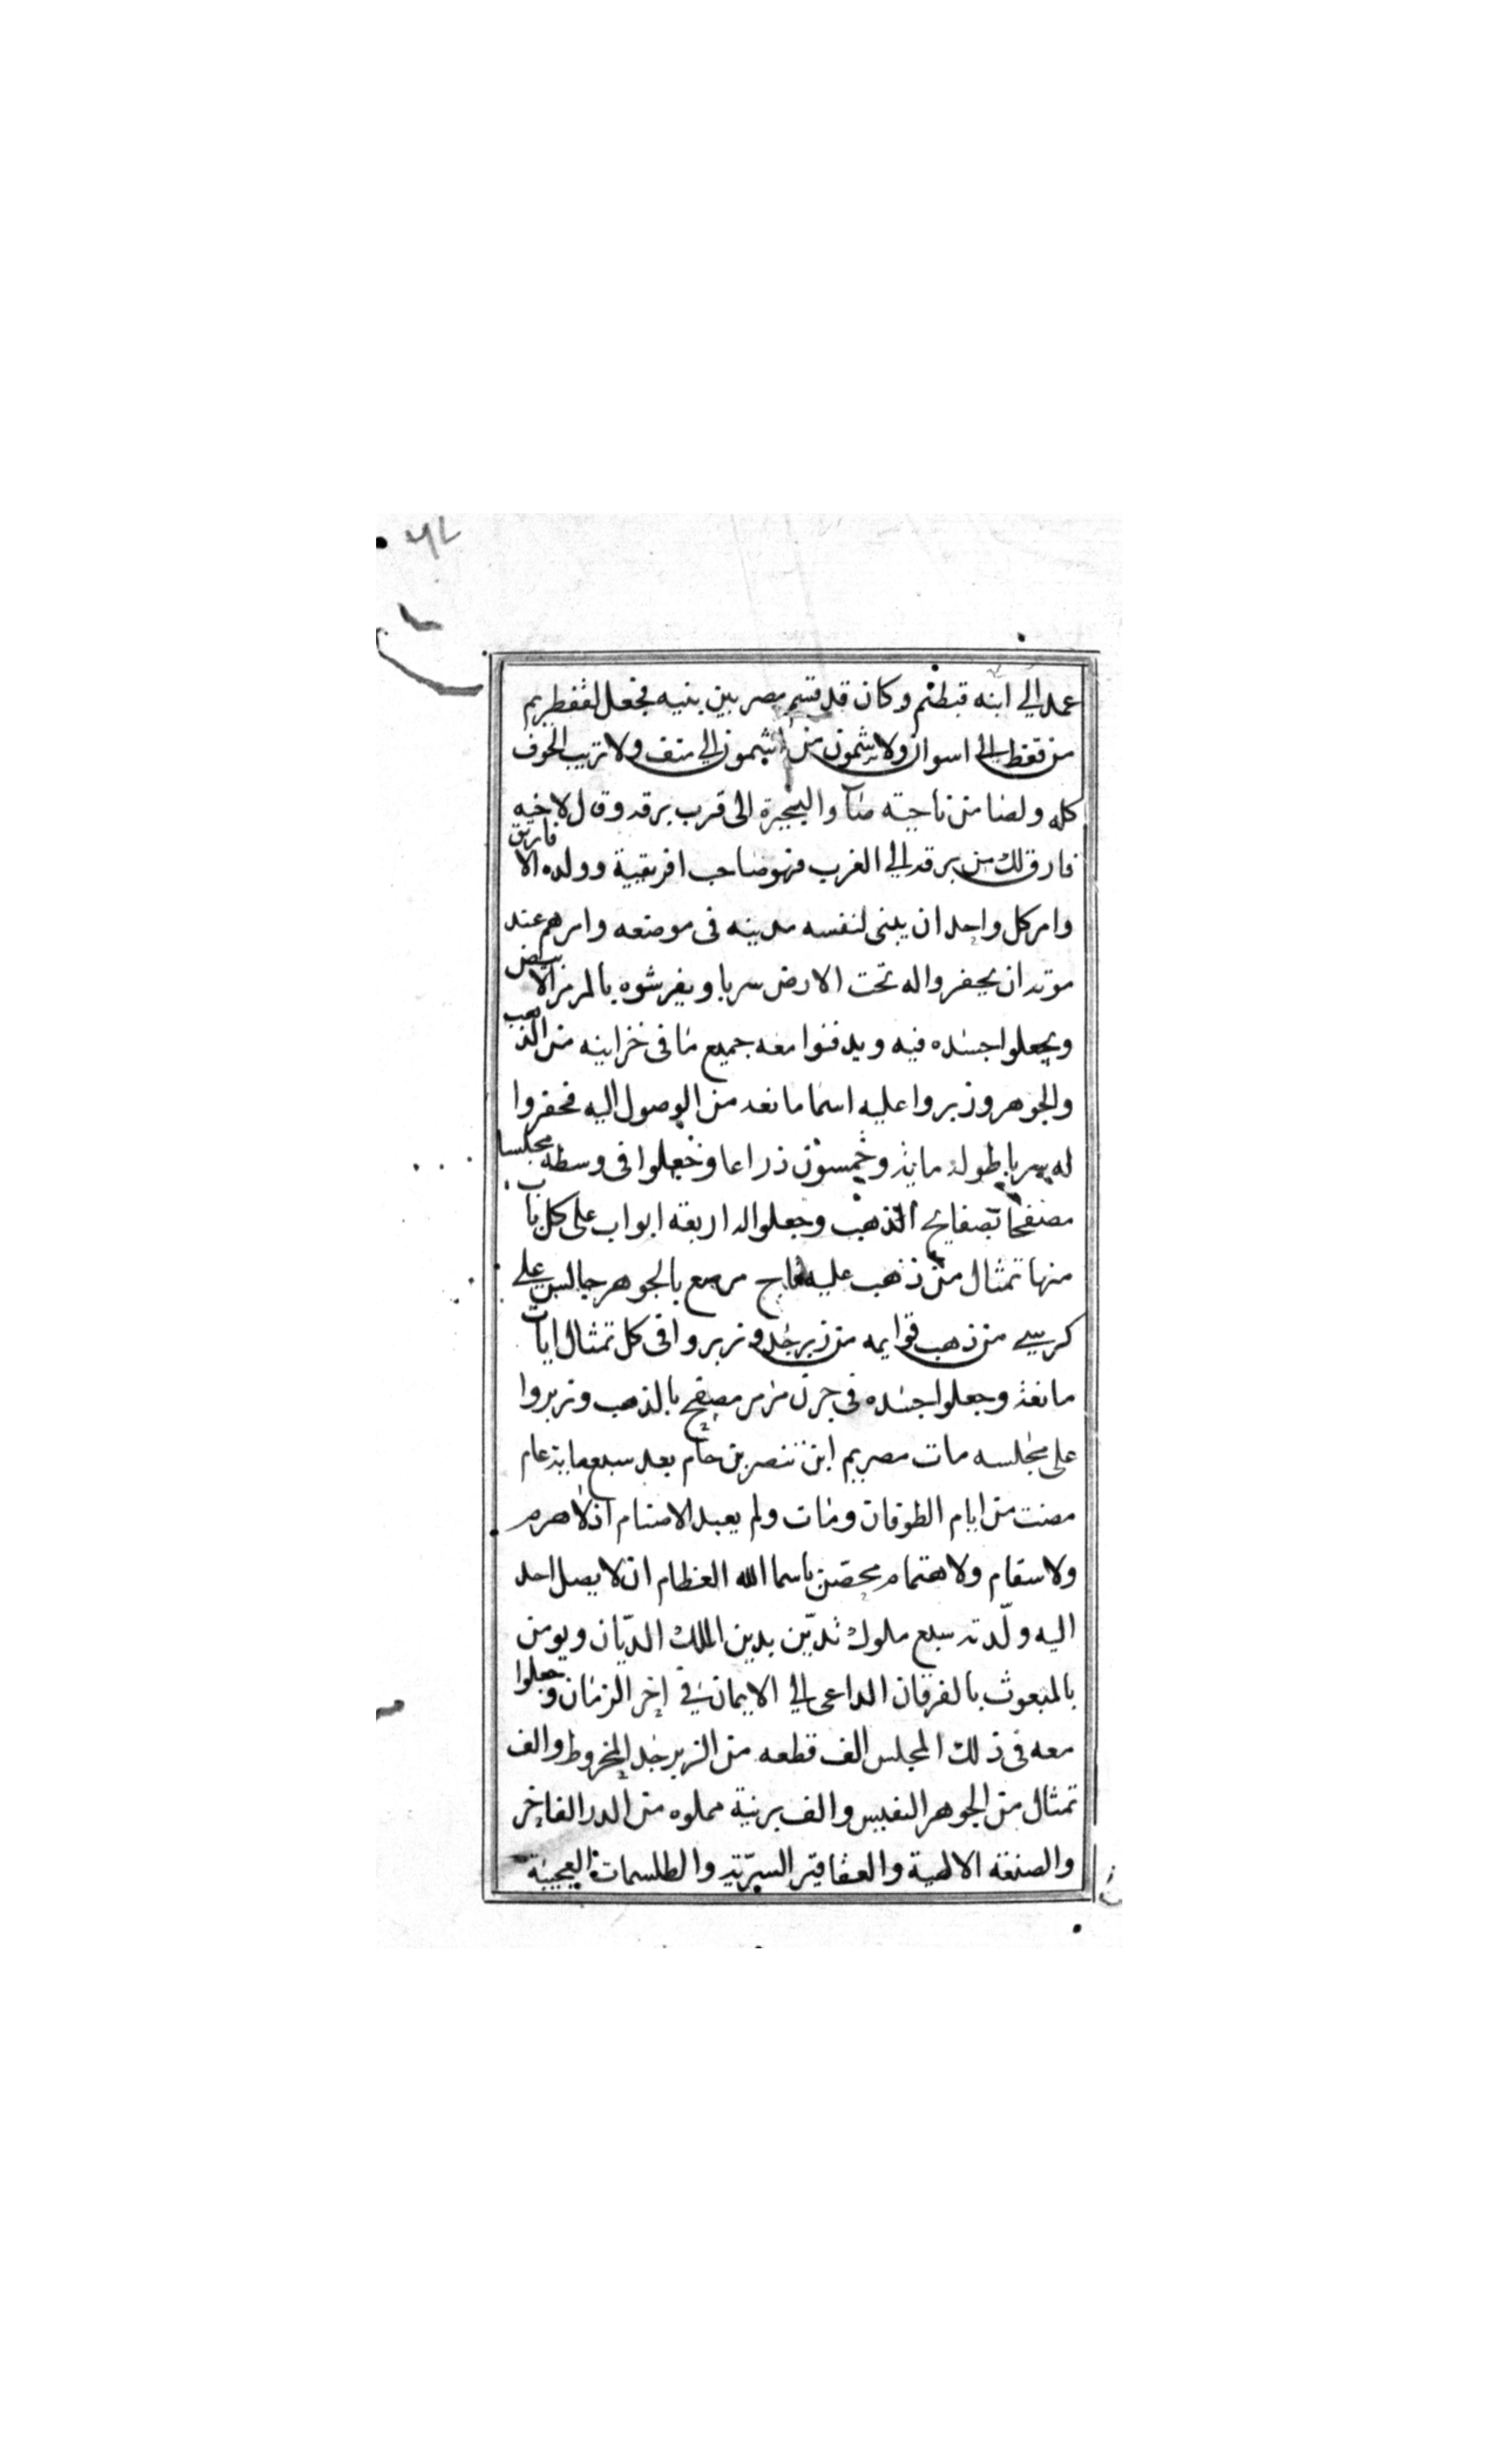 عمد الي ابنه قبطيم وكان قد قسم مصر بين بنيه فجعل لقفطريم
من قفط الي اسوان ولاشمون من اشمون الي منف ولاتريب الحوف
كله ولصا من ناحيته صآ والبحيرة الى قرب برقه وقال لاخيه
فارق لك من برقه الي الغرب فهو صاحب افريقية وولده الافارق
وامر كل واحد ان يبنى لنفسه مدينه فى موضعه وامرهم عند
موته ان يحفروا له تحت الارض سربا ويفرشوه بالمرمر الابيض
ويجعلوا جسده فيه ويدفنوا معه جميع ما فى خزاينه من الذهب
والجوهر وزبروا عليه اسما مانعه من الوصول اليه فحفروا
له سربا طوله مايه وخمسون ذراعا وجعلوا فى وسطه مجلسا
مصفحا بصفايح الذهب وجعلوا له اربعة ابواب على كل باب
منها تمثال من ذهب عليه تاج مرصع بالجوهر جالس علي
كرسي من ذهب قوايمه من زبرجد وزبروا فى كل تمثال ايات
مانعه وجعلوا جسده فى جرن مرمر مصفح بالذهب وزبروا
على مجلسه مات مصريم ابن تنصر بن حام بعد سبع مايه عام
مضت من ايام الطوفان ومات ولم يعبد الاصنام اذ لا هرم
ولا سقام ولا اهتمام محصن باسما الله العظام ان لا يصل احد
اليه ولدته سبع ملوك تدين بدين الملك الديان ويومن
بالمبعوث بالفرقان الداعى الي الايمان في اخر الزمان وجعلوا
معه فى ذلك المجلس الف قطعه من الزبرجد المخروط والف
تمثال من الجوهر النفيس والف برنية مملوه من الدر الفاخر
والصنعة الالهية والعقاقير السرية والطلسمات العجيبة